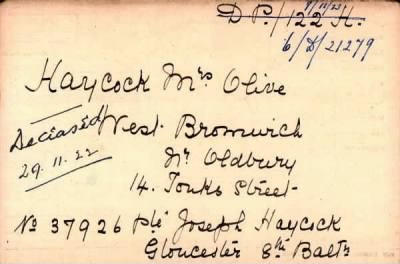 D.P./122.H.
6/D/21279
Haycock Mrs Olive
Deceased
29.11.22
West Bromwich
Nr Oldbury
14. Tonks Street
No 37926 Pte Joseph Haycock
Gloucester 8th Balt